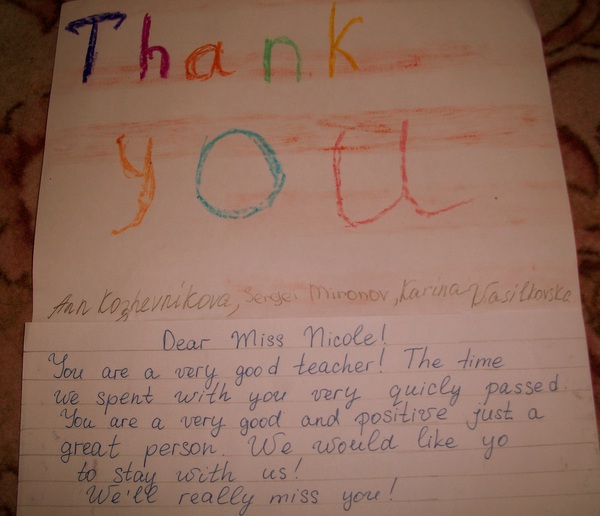 Thank
you
Ann Kozhevnikova, Sergei Mironov, Karina Vasilkovska
Dear Miss Nicole!
You are a very good teacher! The time
we spent with you very quicly passed.
You are a very good and positive just a
great person. We would like yo
to stay with us!
We'll really miss you!